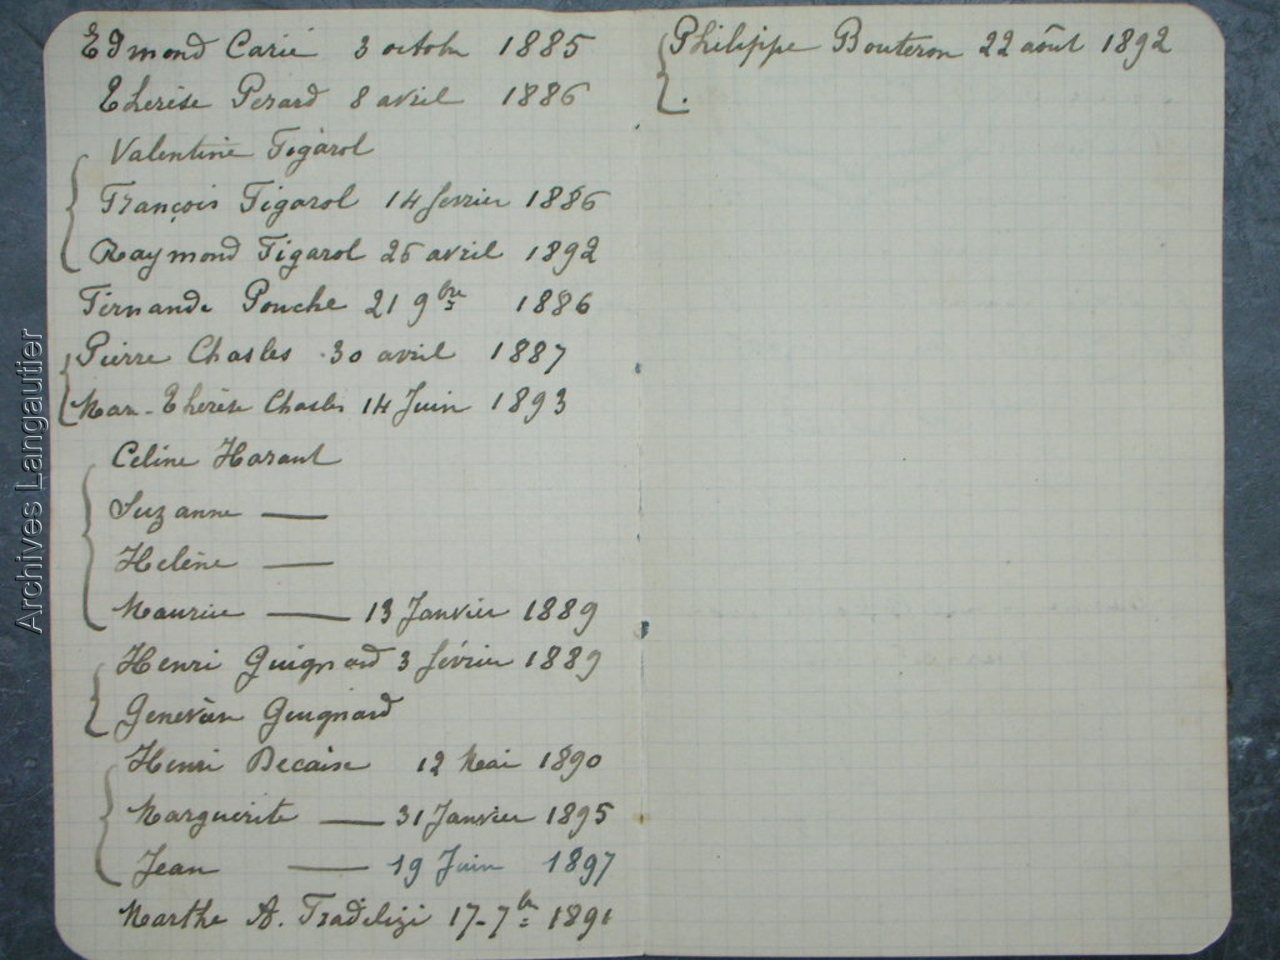 Edmond Carié 3 octobre 1885
Thérèse Perard 8 avril 1886
Valentine Figarol
François Figarol 14 février 1886
Raymond Figarol 26 avril 1892
Fernande Pouche 21 9bre 1886
Pierre Chasles 30 avril 1887
Mar-Thérèse Chasles 14 Juin 1893
Celine Haraut
Suzanne —
Helène —
Maurice — 13 Janvier 1889
Henri Guignard 3 février 1889
Geneviève Guignard
Henri Decaise 12 Mai 1890
Marguerite — 31 Janvier 1895
Jean — 19 Juin 1897
Marthe A. 17-7bre 1891
Philippe Bouteron 22 août 1892
Archives Langautier